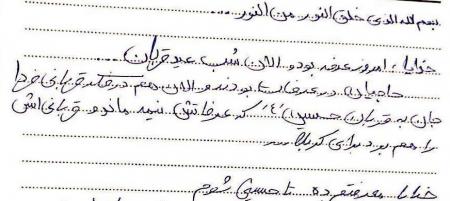 بسم الله الذی خلق النور من النور ....
خدایا ، امروز عرفه بود و الان شب عید قربان ....
حاجیان در عرفات بودند و الان هم در فکر قربانی فردا
جان به قربان حسین "ع" که عرفاتش نیمه ماند و قربانی اش
را هم برد برای کربلا ....
خدایا معرفتم ده تا حسینی شوم